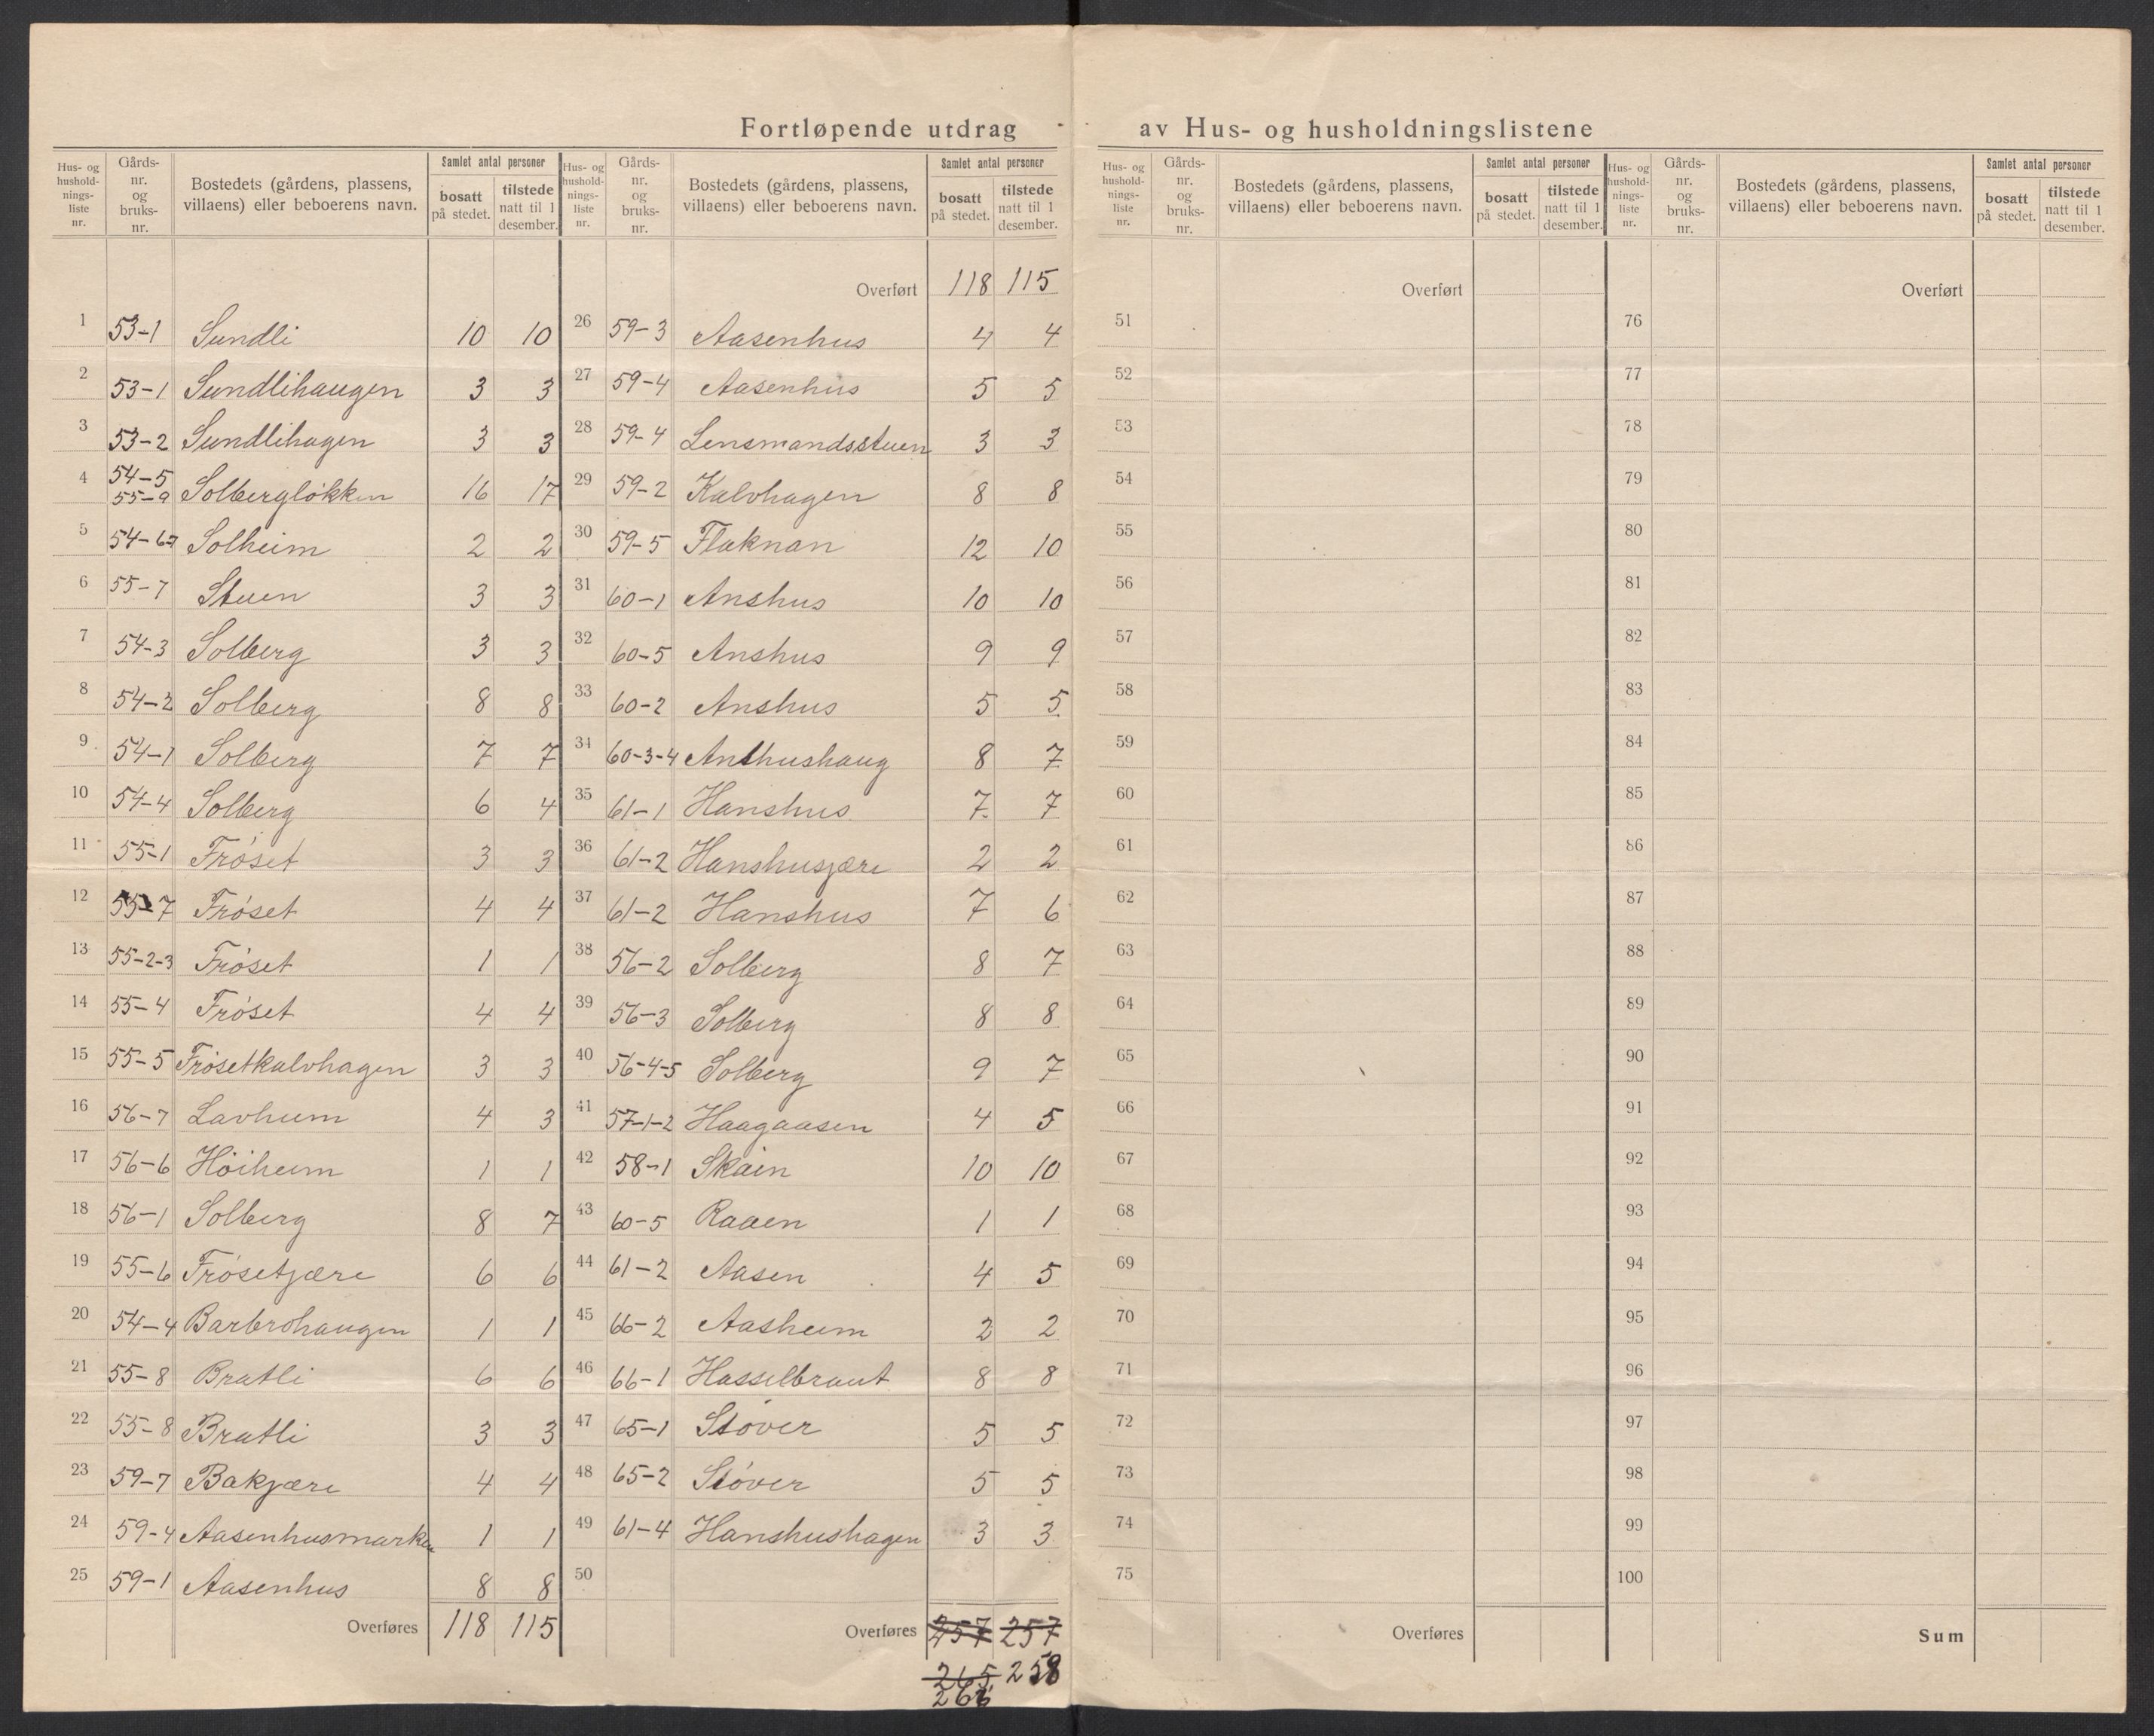 Fortløpende utdrag av Hus- og husholdningslistene
Hus- og husholdnings-liste nr. | Gårds-nr. og bruks-nr. | Bostedets (gårdens, plassens, villaens) eller beboerens navn. | Samlet antal personer | bosatt på stedet. | tilstede natt til 1 desember.
1 53-1 Sundli 10 10
2 53-1 Sundlihaugen 3 3
3 53-2 Sundlihagen 3 3
4 54-5 55-9 Solbergløkken 16 17
5 54-67 Solheim 2 2
6 55-7 Stuen 3 3
7 54-3 Solberg 3 3
8 54-2 Solberg 8 8
9 54-1 Solberg 7 7
10 54-4 Solberg 6 4
11 55-1 Frøset 3 3
12 55-7 Frøset 4 4
13 55-2-3 Frøset 1 1
14 55-4 Frøset 4 4
15 55-5 Frøsetkalvhagen 3 3
16 56-7 Lavheim 4 3
17 56-6 Høiheim 1 1
18 56-1 Solberg 8 7
19 55-6 Frøsetjære 6 6
20 54-4 Barbrohaugen 1 1
21 55-8 Bratli 6 6
22 55-8 Bratli 3 3
23 59-7 Bakjære 4 4
24 59-4 Aasenhusmarken 1 1
25 59-1 Aasenhus 8 8
Overføres 118 115
Hus- og husholdnings-liste nr. | Gårds-nr. og bruks-nr. | Bostedets (gårdens, plassens, villaens) eller beboerens navn. | Samlet antal personer | bosatt på stedet. | tilstede natt til 1 desember.
Overført 118 115
26 59-3 Aasenhus 4 4
27 59-4 Aasenhus 5 5
28 59-4 Lensmandsstuen 3 3
29 59-2 Kalvhagen 8 8
30 59-5 Flaknan 12 10
31 60-1 Anshus 10 10
32 60-5 Anshus 9 9
33 60-2 Anshus 5 5
34 60-3-4 Anshushaug 8 7
35 61-1 Hanshus 7 7
36 61-2 Hanshusjære 2 2
37 61-2 Hanshus 7 6
38 56-2 Solberg 8 7
39 56-3 Solberg 8 8
40 56-4-5 Solberg 9 7
41 57-1-2 Haagaasen 4 5
42 58-1 Skáen 10 10
43 60-5 Raaen 1 1
44 61-2 Aasen 4 5
45 66-2 Aasheim 2 2
46 66-1 Hasselbraut 8 8
47 65-1 Støver 5 5
48 65-2 Støver 5 5
49 61-4 Hanshushagen 3 3
50
Overføres 257 257
265 258
266
Hus- og husholdnings-liste nr. | Gårds-nr. og bruks-nr. | Bostedets (gårdens, plassens, villaens) eller beboerens navn. | Samlet antal personer | bosatt på stedet. | tilstede natt til 1 desember.
Overført
51
52
53
54
55
56
57
58
59
60
61
62
63
64
65
66
67
68
69
70
71
72
73
74
75
Overføres
Hus- og husholdnings-liste nr. | Gårds-nr. og bruks-nr. | Bostedets (gårdens, plassens, villaens) eller beboerens navn. | Samlet antal personer | bosatt på stedet. | tilstede natt til 1 desember.
Overført
76
77
78
79
80
81
82
83
84
85
86
87
88
89
90
91
92
93
94
95
96
97
98
99
100
Sum